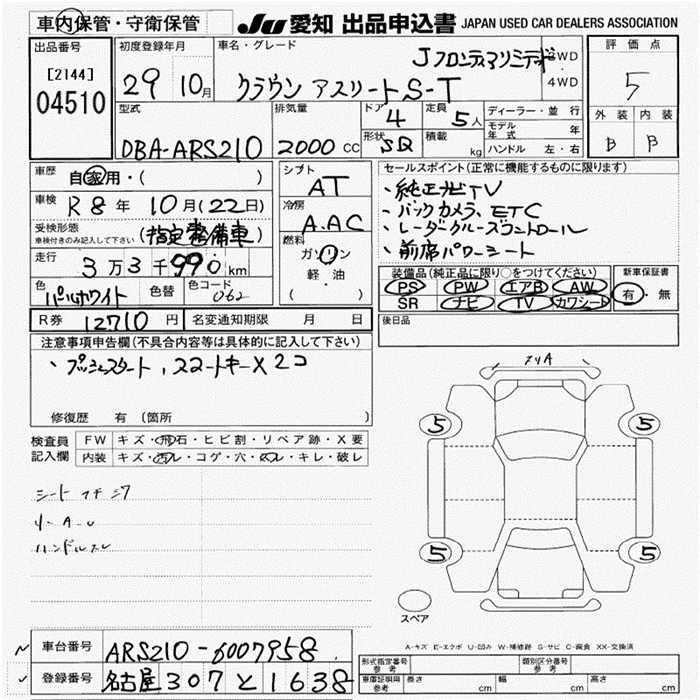 車内保管・守衛保管
JU 愛知 出品申込書 JAPAN USED CAR DEALERS ASSOCIATION
出品番号
[2144]
04510
初度登録年月
29 10月
車名・グレード
Jフロンティアリミテッド
クラウン アスリートS-T
2WD
4WD
評価点
5
外装 内装
B B
型式
DBA-ARS210
排気量
2000 CC
ドア
4
形状
SQ
定員
5人
積載
kg
ディーラー・並行
モデル年式 年
ハンドル 左・右
車歴
自家用・( )
車検
R8年 10月(22日)
受検形態
車検付きのみ記入して下さい
(指定整備車)
走行
3万3千990km
色
パールホワイト
色替
色コード
062
シフト
AT
冷房
A.AC
燃料
ガソリン
軽・油
( )
セールスポイント(正常に機能するものに限ります)
、純正ナビTV
、バックカメラ、ETC
、レーダークルーズコントロール
、前席パワーシート
装備品(純正品に限り○をつけてください)
PS PW エアB AW
SR ナビ TV カワシート
新車保証書
有・無
R券 12710円
名変通知期限 月 日
後日品
注意事項申告欄(不具合内容等は具体的に記入して下さい)
、プッシュスタート、スマートキー×2コ
修復歴 有(箇所
検査員
記入欄
FW キズ・飛石・ヒビ割・リペア跡・X要
内装 キズ・汚レ・コゲ・穴・スレ・キレ・破レ
ハンドルスレ
クリA
5 5
5 5
スペア
A-キズ E-エクボ U-凹み W-補修跡 S-サビ C-腐食 XX-交換済
車台番号
ARS210-6007958
登録番号
名古屋 307 と 1638
形式指定番号
参考
類別区分番号
参考
車庫証明用
参考
長さ cm
幅 cm
高さ cm